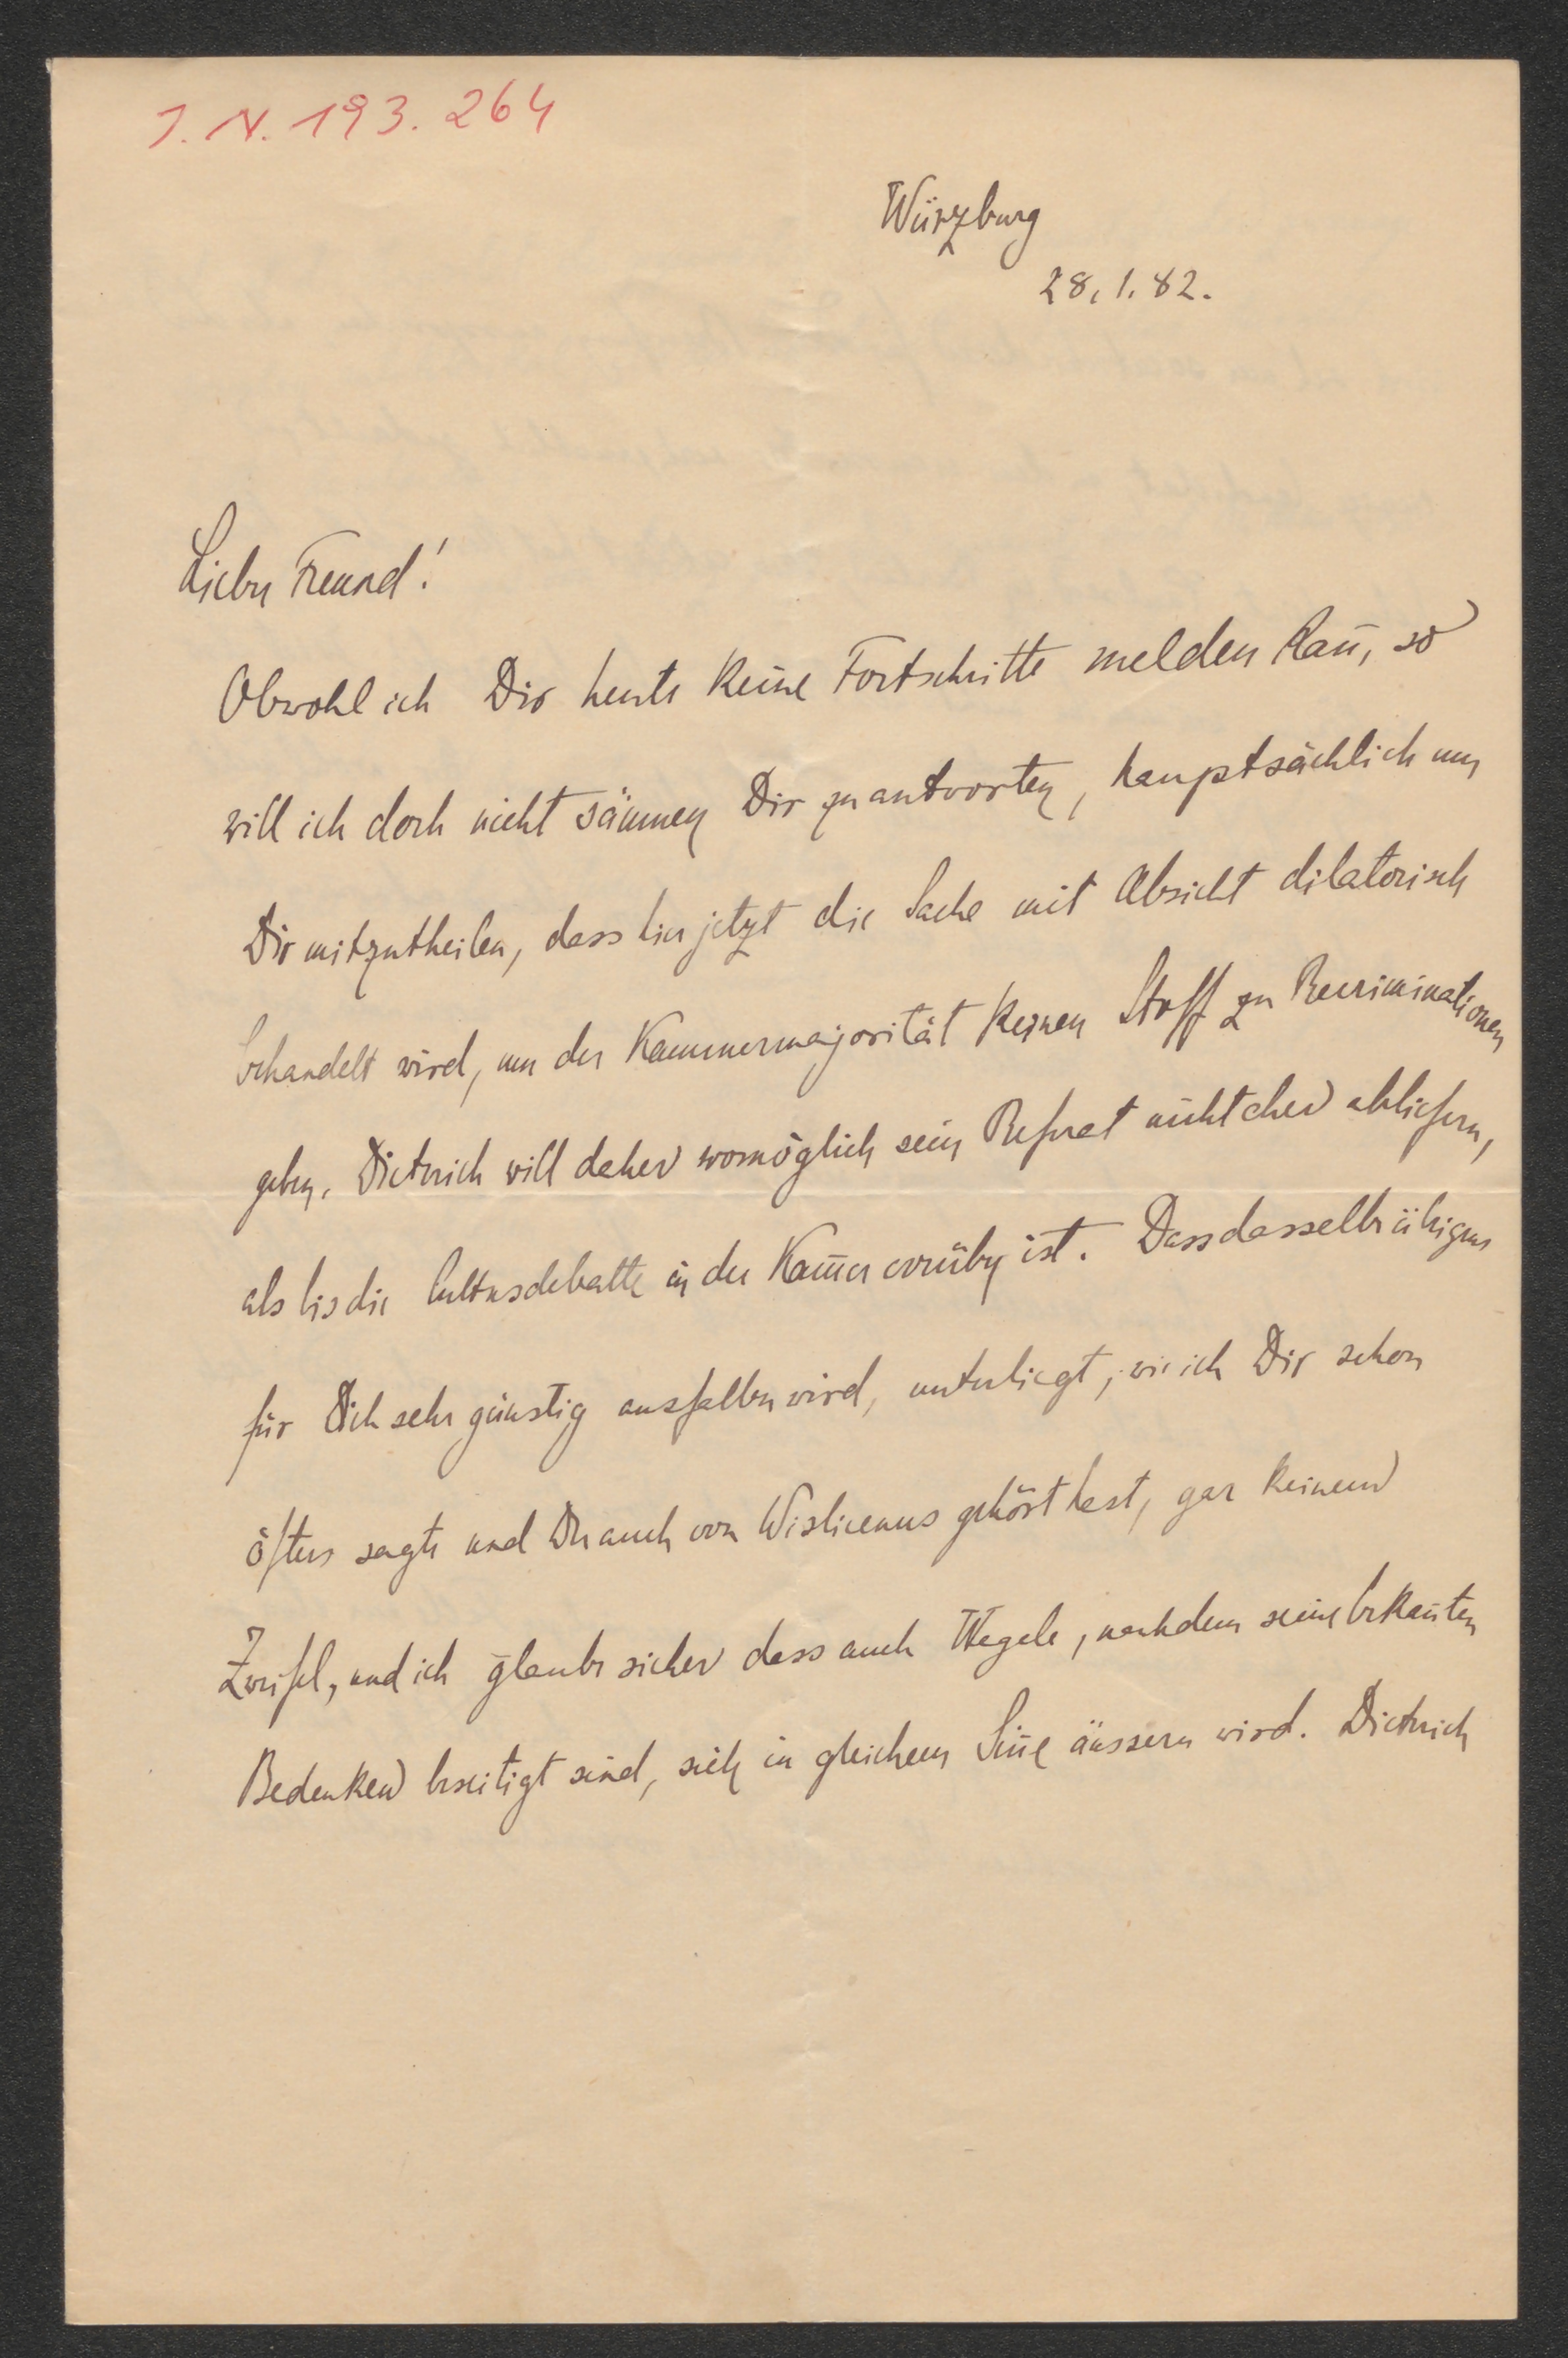 J. N. 193.264
Würzburg
28.1.82.
Lieber Freund!
Obwohl ich Dir heute keine Fortschritte melden kan̄, so
will ich doch nicht säumen Dir zu antworten, hauptsächlich um
Dir mitzutheilen, dass hier jetzt die Sache mit Absicht dilatorisch
behandelt wird, um der Kammermajorität keinen Stoff zu Recriminationen
geben. Dietrich will daher womöglich sein Referat nicht eher abliefern,
als bis die Cultusdebatte in der Kam̄er vorüber ist. Dass dasselbe übrigens
für Dich sehr günstig ausfallen wird, unterliegt, wie ich Dir schon
öfters sagte und Du auch von Wislicenus gehört hast, gar keinem
Zweifel, und ich glaube sicher dass auch Wegele, nachdem seine bekan̄ten
Bedenken beseitigt sind, sich in gleichem Sin̄e äussern wird. Dietrich